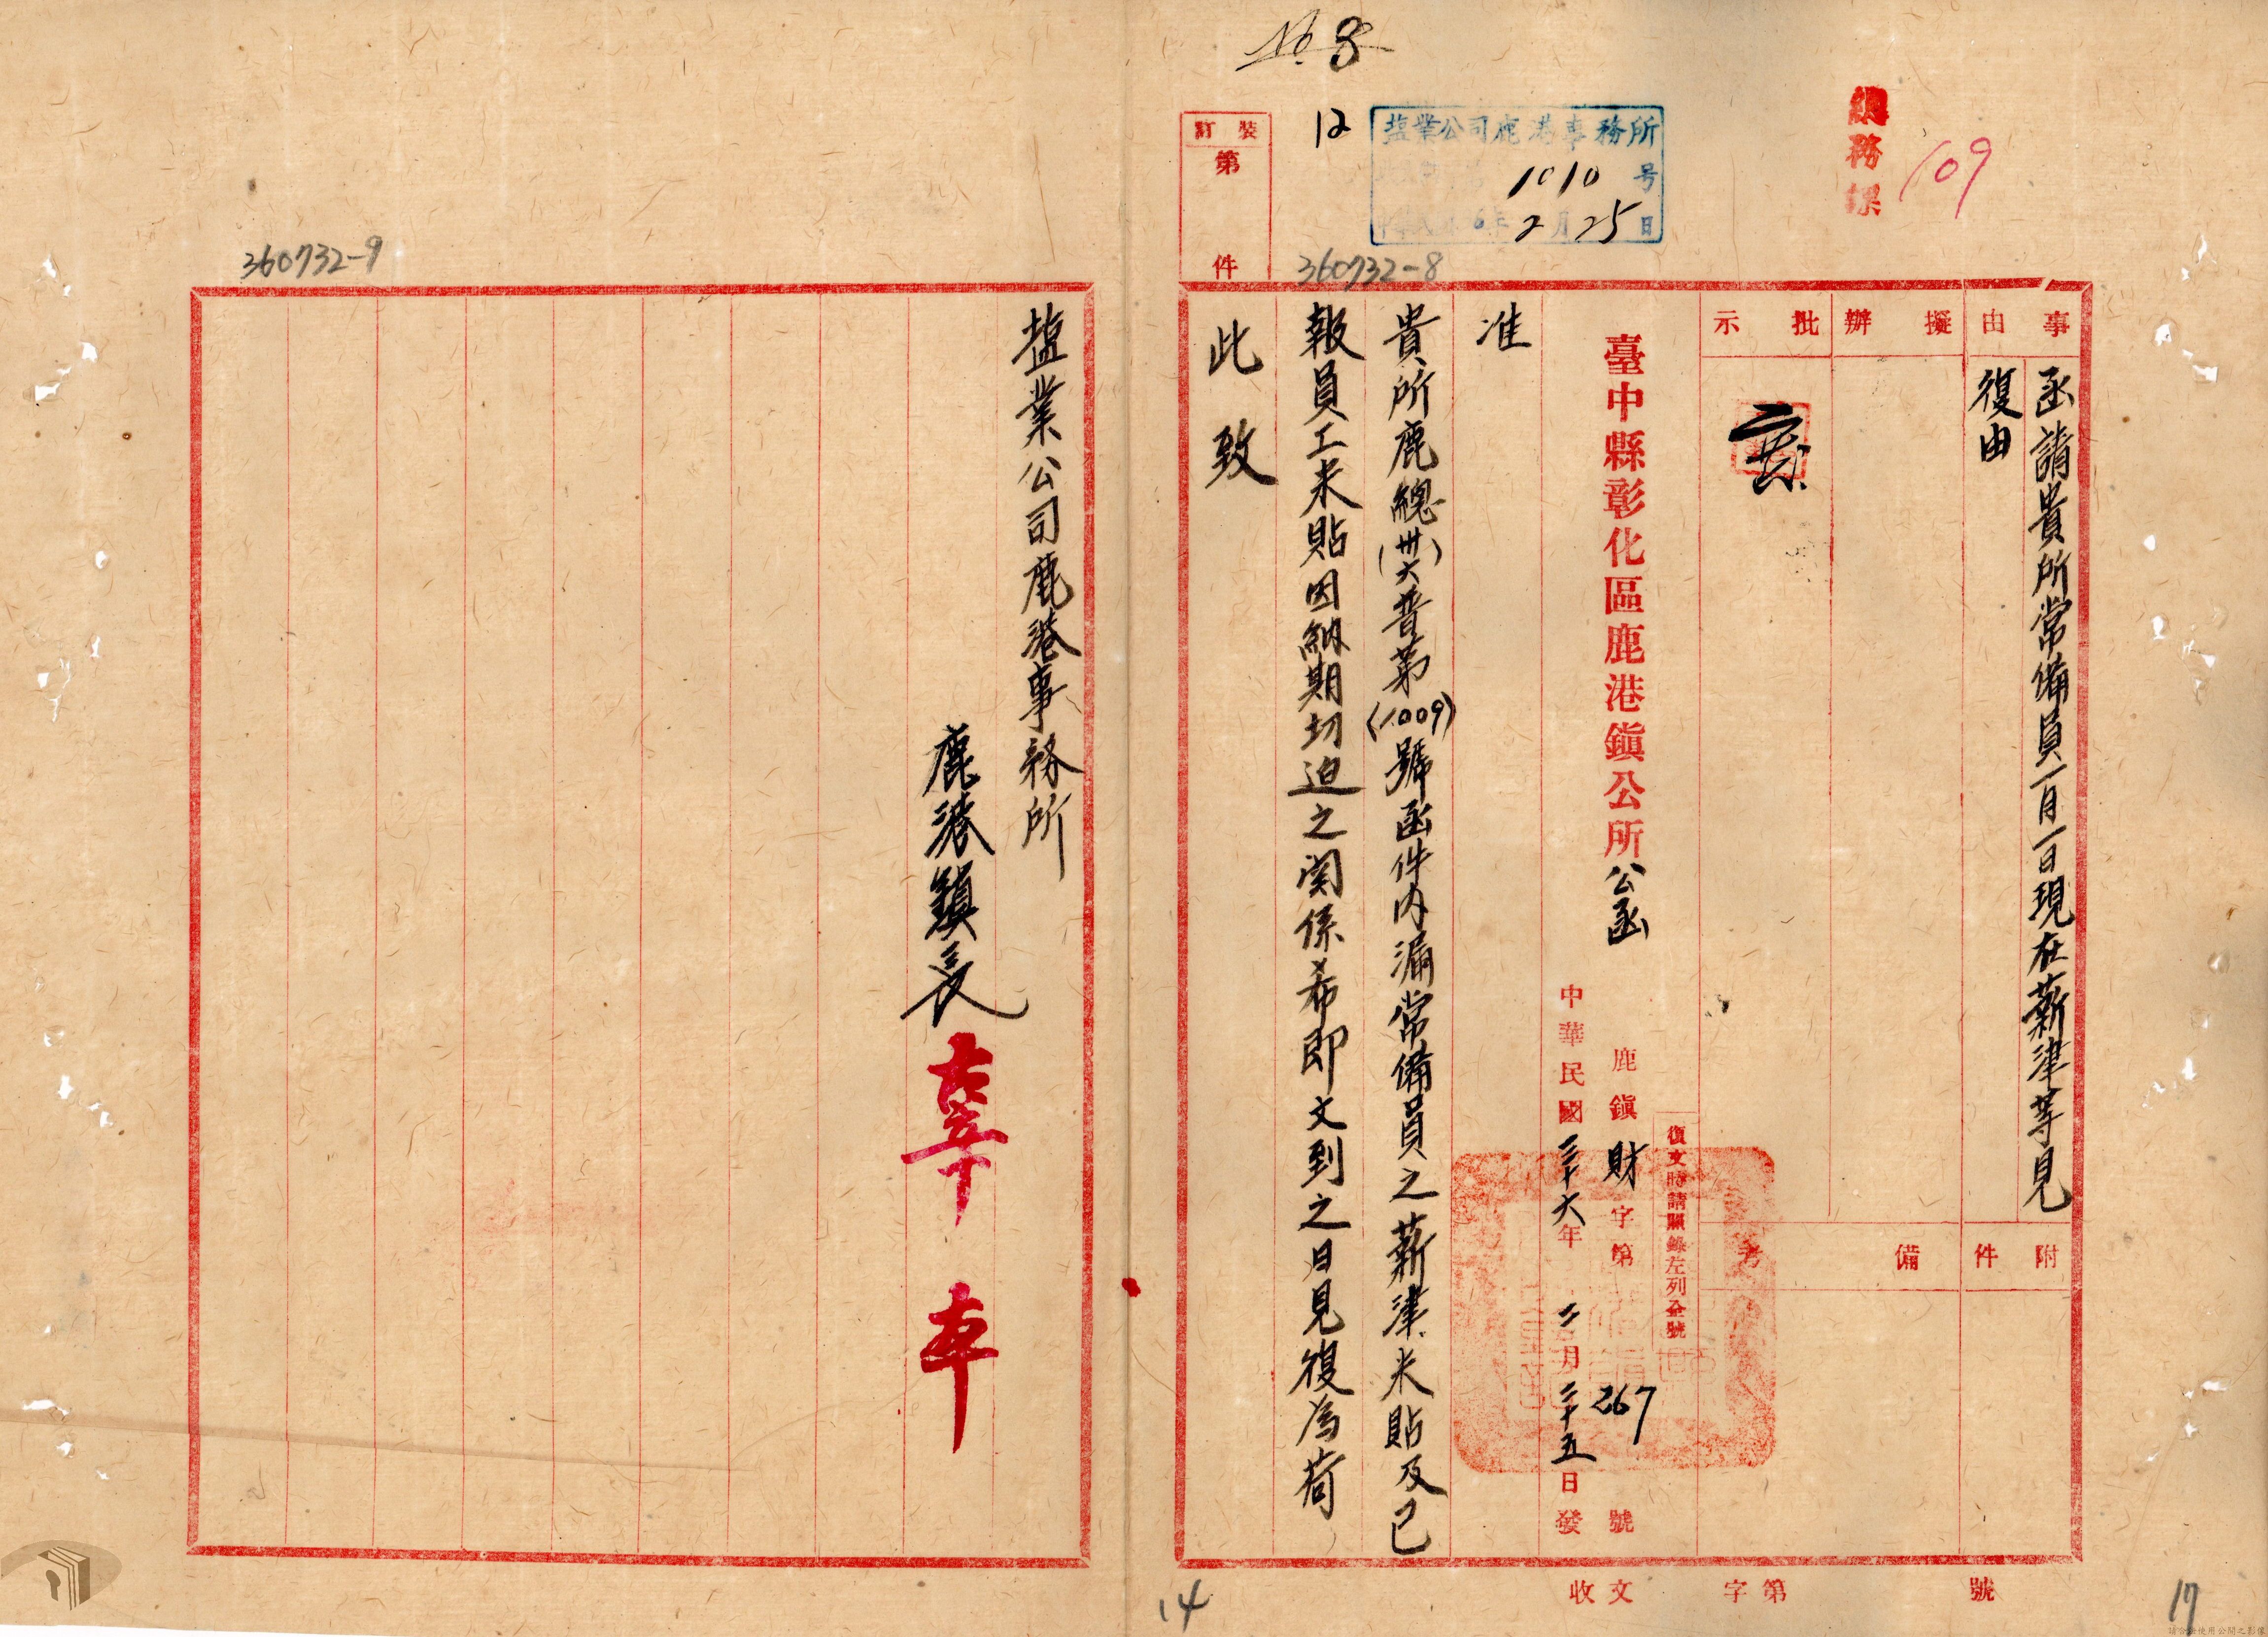 No. 8
總務課
109
12
鹽業公司鹿港事務所
1010 号
6年2月25日
裝訂
第
件
360732-8
360732-9
事由
函請貴所常備員一月一日現在薪津等見
復由
擬辦
批示
附件
備考
臺中縣彰化區鹿港鎮公所公函
復文時請照錄左列全號
鹿鎮財字第267號
中華民國三十六年二月二十五日發
准
貴所鹿總(卅六)普第(1009)號函件內漏常備員之薪津米貼及已
報員工米貼因納期切迫之関係希即文到之日見復為荷
此致
塩業公司鹿港事務所
鹿港鎮長
收文
字第
號
14
17